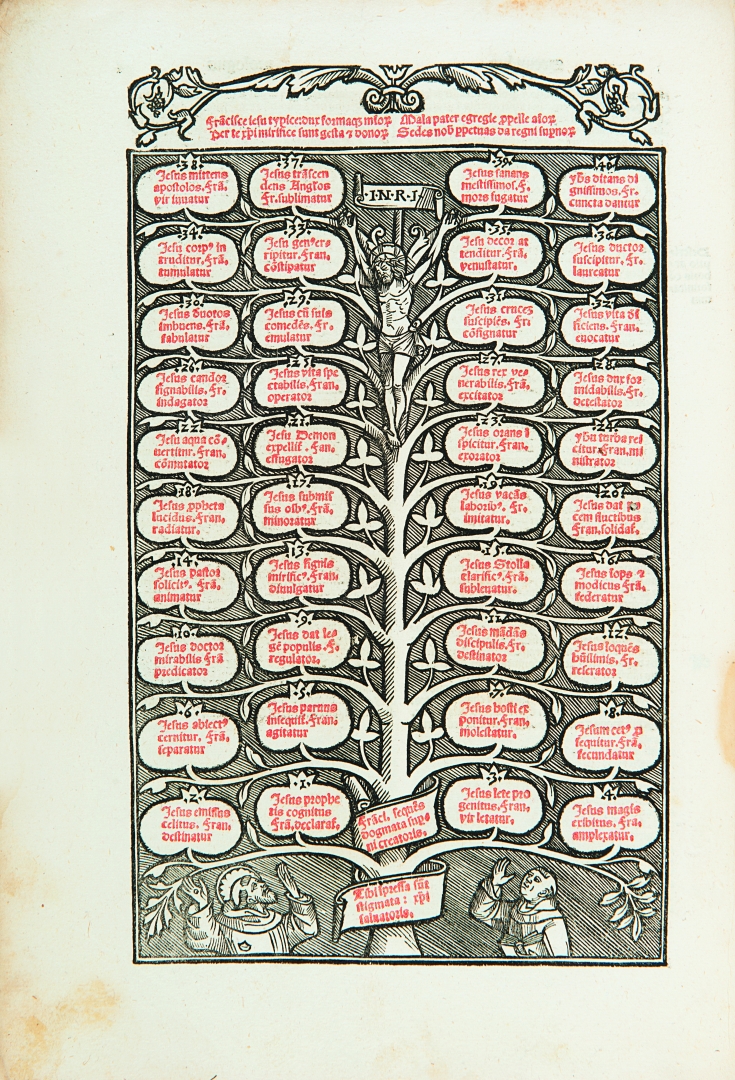 Frãcisce iesu typice: dux formaqꝫ mĩoꝝ Mala pater egregie ꝓpelle aĩoꝝ
Per te xp̃i mirifice sunt gesta ⁊ donoꝝ Sedes nob̃ ꝑpetuas da regni suꝑnoꝝ
.38.
Jesus mittens
apostolos. Frã.
vir iuuatur
.37.
Jesus trãscen
dens Angl'os
Fr. sublimatur
.I.N.R.I.
.39.
Jesus sanans
mestissimos. F.
mors fugatur
.40.
yh̃s ditans di
gnissimos. Fr.
cuncta dantur
.34.
Jesu corpꝰ in
truditur. Frã.
tumulatur
.33.
Jesu genꝰ er
ripitur. Fran.
cõstipatur
.35.
Jesu decor at
tenditur. Frã.
venustatur.
.36.
Jesus ductor
suscipitur. Fr.
laureatur
.30.
Jesus duotos
imbuens. Frã.
fabulatur
.29.
Jesus cũ suis
comedẽs. Fr.
emulatur
.31.
Jesus crucẽ
suscipiẽs. Fr.
cõsignatur
.32.
Jesus vita
ficiens. Fran.
enocatur
.26.
Jesus candor
signabilis. Fr.
indagator
.25.
Jesus vita spe
ctabilis. Fran.
operator
.27.
Jesus rex ve
nerabilis. Frã.
excitator
.28.
Jesus dux for
midabilis. Fr.
detestator
.22.
Jesu aqua cõ
uertitur. Fran.
cõmutator
.21.
Jesu Demon
expellit̃. Fan.
effugator
.23.
Jesus orans
spicitur. Fran.
exorator
.24.
yh̃u turba rei
citur. Fran. mi
nistrator
.18.
Jesus ꝓpheta
lucidus. Fran.
radiatur.
.17.
Jesus submis
sus oĩbꝰ. Frã.
minoratur
.19.
Jesus vacãs
laboribꝰ. Fr.
imitatur.
.20.
Jesus dat pa
cem fluctibus
Fran. solidat̃.
.14.
Jesus pastor
solicitꝰ. Frã.
animatur
.13.
Jesus signis
mirificꝰ. Fran.
diuulgatur
.15.
Jesus Stolla
clarificꝰ. Frã.
subleuatur.
.16.
Jesus ĩops ⁊
modicus Frã.
federatur
.10.
Jesus doctor
mirabilis Frã
predicator
.9.
Jesus dat le
gẽ populis. F.
regulator.
.11.
Jesus mãdãs
discipulis. Fr.
destinator
.12.
Jesus loquẽs
hũilimis. Fr.
reserator
.6.
Jesus abiectꝰ
cernitur. Frã.
separatur
.5.
Jesus paruus
insequit̃. Fran.
agitatur
.7.
Jesus hosti ex
ponitur. Fran.
molestatur.
.8.
Jesum cetꝰ ꝑ
sequitur. Frã.
fecundatur
.2.
Jesus emissus
celitus. Fran.
destinatur
.1.
Jesus prophe
tis cognitus
Frã. declarat̃.
.3.
Jesus lete pro
genitus. Fran.
vir letatur.
.4.
Jesus magis
exibitus. Fra.
amplexatur.
Frãci. sequẽs
dogmata supꝰ
ni creatoris.
Tibi ĩpressa sũt
stigmata: xp̃i
saluatoris.